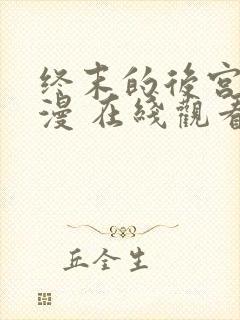 终末的後宮
漫 在綫觀看
丘全生